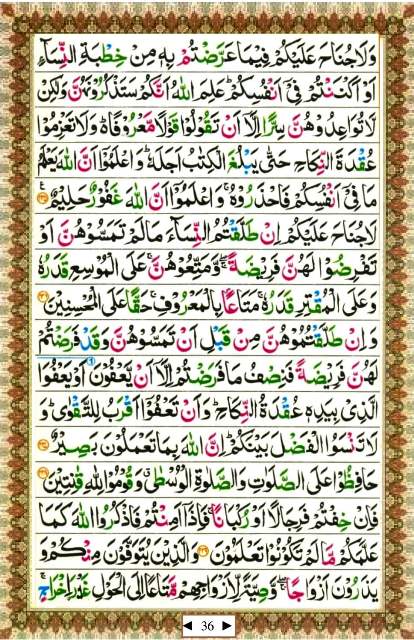 وَلَا جُنَاحَ عَلَيْكُمْ فِيْمَا عَرَّضْتُمْ بِهٖ مِنْ خِطْبَةِ النِّسَآءِ
اَوْ اَكْنَنْتُمْ فِيْٓ اَنْفُسِكُمْ ؕ عَلِمَ اللّٰهُ اَنَّكُمْ سَتَذْكُرُوْنَهُنَّ وَلٰكِنْ
لَّا تُوَاعِدُوْهُنَّ سِرًّا اِلَّاۤ اَنْ تَقُوْلُوْا قَوْلًا مَّعْرُوْفًا ؕ۬ وَلَا تَعْزِمُوْا
عُقْدَةَ النِّكَاحِ حَتّٰى يَبْلُغَ الْكِتٰبُ اَجَلَهٗ ؕ وَاعْلَمُوْٓا اَنَّ اللّٰهَ يَعْلَمُ
مَا فِيْٓ اَنْفُسِكُمْ فَاحْذَرُوْهُ ۚ وَاعْلَمُوْٓا اَنَّ اللّٰهَ غَفُوْرٌ حَلِيْمٌ
لَا جُنَاحَ عَلَيْكُمْ اِنْ طَلَّقْتُمُ النِّسَآءَ مَا لَمْ تَمَسُّوْهُنَّ اَوْ
تَفْرِضُوْا لَهُنَّ فَرِيْضَةً ۚۖ وَّمَتِّعُوْهُنَّ ۚ عَلَى الْمُوْسِعِ قَدَرُهٗ
وَعَلَى الْمُقْتِرِ قَدَرُهٗ ۚ مَتَاعًۢا بِالْمَعْرُوْفِ ۚ حَقًّا عَلَى الْمُحْسِنِيْنَ
وَاِنْ طَلَّقْتُمُوْهُنَّ مِنْ قَبْلِ اَنْ تَمَسُّوْهُنَّ وَقَدْ فَرَضْتُمْ
لَهُنَّ فَرِيْضَةً فَنِصْفُ مَا فَرَضْتُمْ اِلَّاۤ اَنْ يَّعْفُوْنَ اَوْ يَعْفُوَا
الَّذِيْ بِيَدِهٖ عُقْدَةُ النِّكَاحِ ؕ وَاَنْ تَعْفُوْٓا اَقْرَبُ لِلتَّقْوٰى ؕ وَ
لَا تَنْسَوُا الْفَضْلَ بَيْنَكُمْ ؕ اِنَّ اللّٰهَ بِمَا تَعْمَلُوْنَ بَصِيْرٌ
حَافِظُوْا عَلَى الصَّلَوٰتِ وَالصَّلٰوةِ الْوُسْطٰى ۗ وَقُوْمُوْا لِلّٰهِ قٰنِتِيْنَ
فَاِنْ خِفْتُمْ فَرِجَالًا اَوْ رُكْبَانًا ۚ فَاِذَآ اَمِنْتُمْ فَاذْكُرُوا اللّٰهَ كَمَا
عَلَّمَكُمْ مَّا لَمْ تَكُوْنُوْا تَعْلَمُوْنَ وَالَّذِيْنَ يُتَوَفَّوْنَ مِنْكُمْ وَ
يَذَرُوْنَ اَزْوَاجًا ۖۚ وَّصِيَّةً لِّاَزْوَاجِهِمْ مَّتَاعًا اِلَى الْحَوْلِ غَيْرَ اِخْرَاجٍ ۚ
36